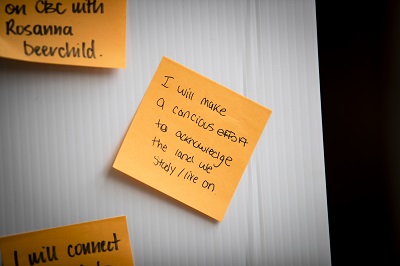 on CBC with
Rosanna
Deerchild.
I will make
a concious effort
to acknowledge
the land we
study/live on
I will connect